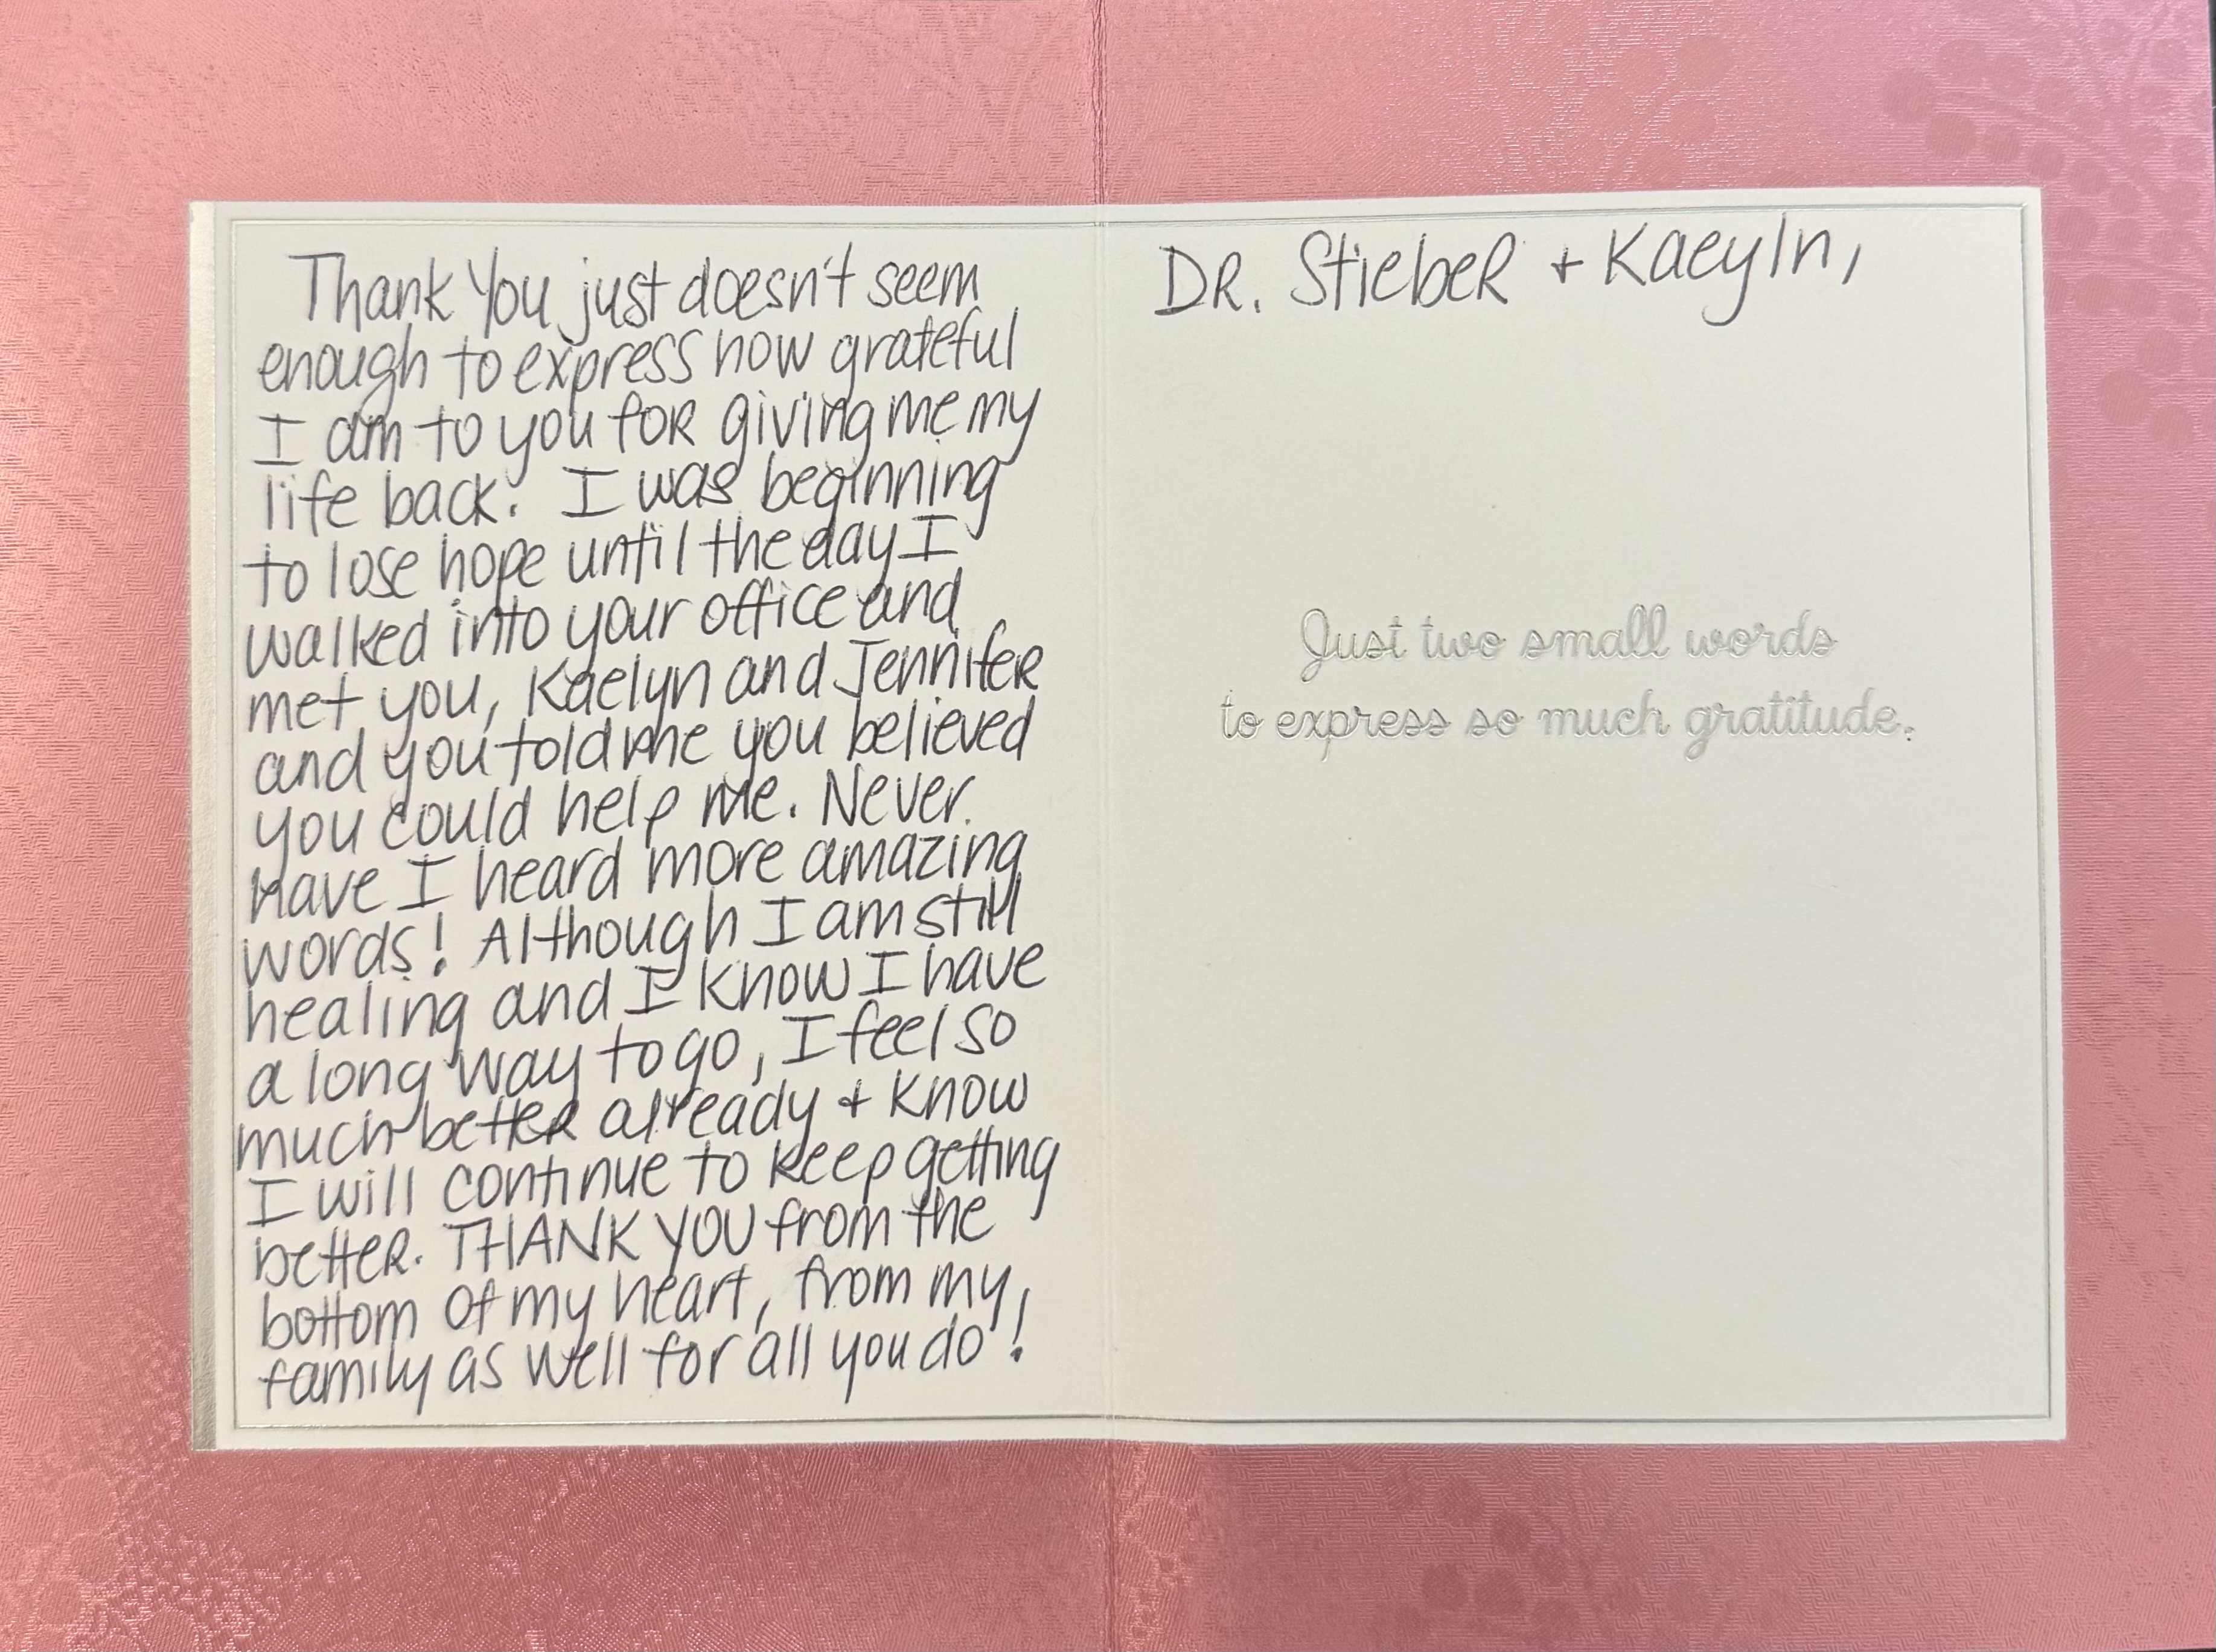 Thank You just doesn't seem
enough to express how grateful
I am to you for giving me my
life back. I was beginning
to lose hope until the day I
walked into your office and
met you, Kaelyn and Jennifer
and you told me you believed
you could help me. Never
have I heard more amazing
words! Although I am still
healing and I know I have
a long way to go, I feel so
much better already + know
I will continue to keep getting
better. THANK YOU from the
bottom of my heart, from my
family as well for all you do!
DR. Stieber + Kaeyln,
Just two small words
to express so much gratitude.